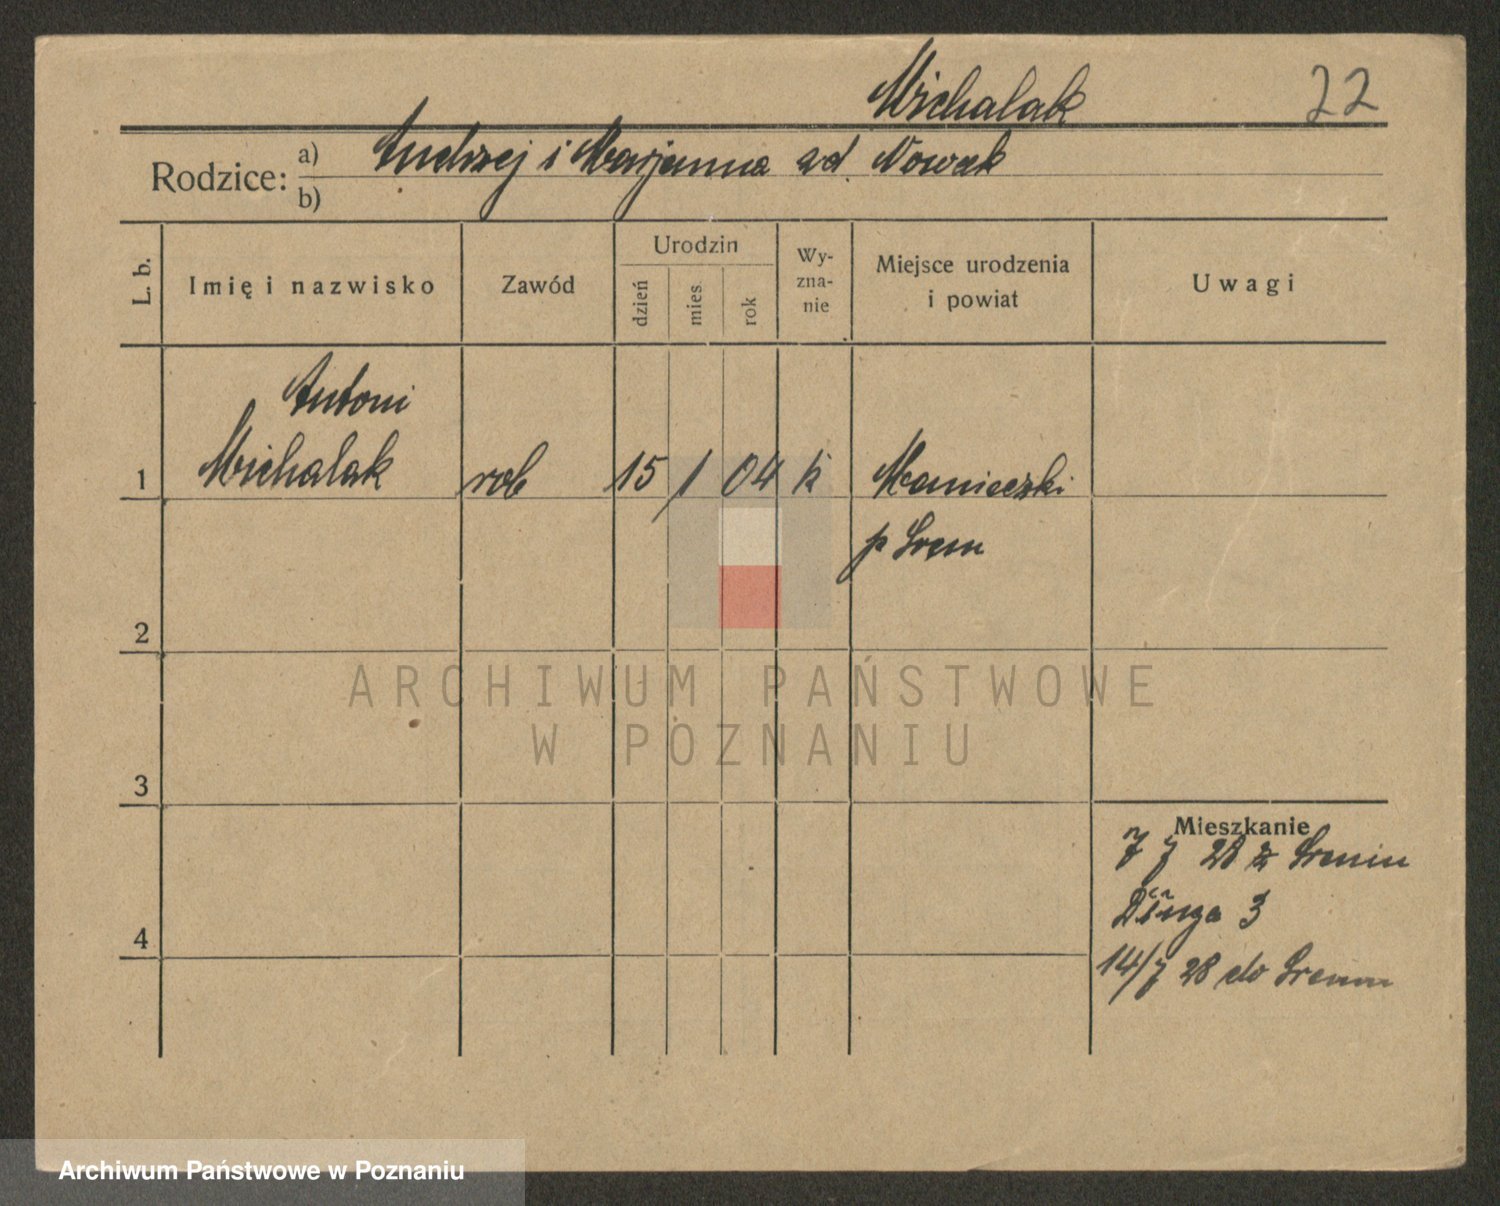 Michalak 22
Rodzice: a) Andrzej i Marjanna zd. Nowak
b)
L. b. Imię i nazwisko Zawód Urodzin dzień mies. rok Wy-zna-nie Miejsce urodzenia i powiat Uwagi
Antoni
1 Michalak rob 15 / 1 04 k Manieczki
p Śrem
2
ARCHIWUM PAŃSTWOWE
W POZNANIU
3
Mieszkanie
7 7 28 z Śremu
3
4
14/7 28 do Śremu
Archiwum Państwowe w Poznaniu